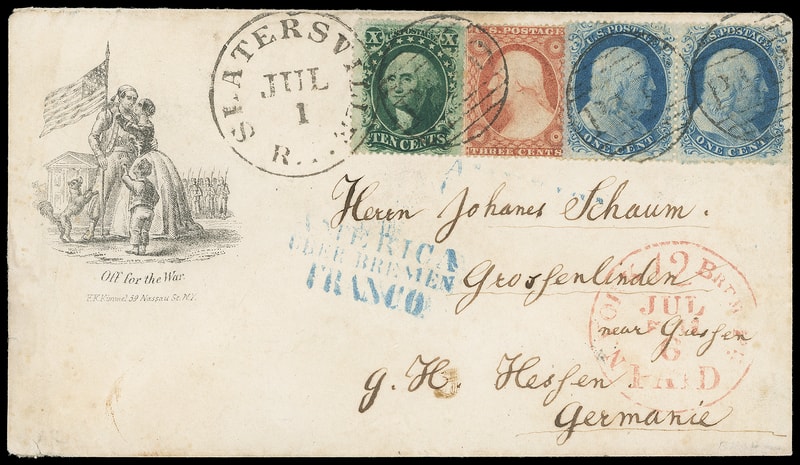 SLATERSVILLE
JUL
1
R. I.
U.S. POSTAGE
X X
TEN CENTS
U.S. POSTAGE
THREE CENTS
U.S. POSTAGE
ONE CENT
U.S. POSTAGE
ONE CENT
PAID
Off for the War.
AMERICA
UBER BREMEN
FRANCO
Herrn Johanes Schaum.
Grossenlinden
near Giessen
g. H. Hessen
Germanie
12
BREM
JUL
6
PAID